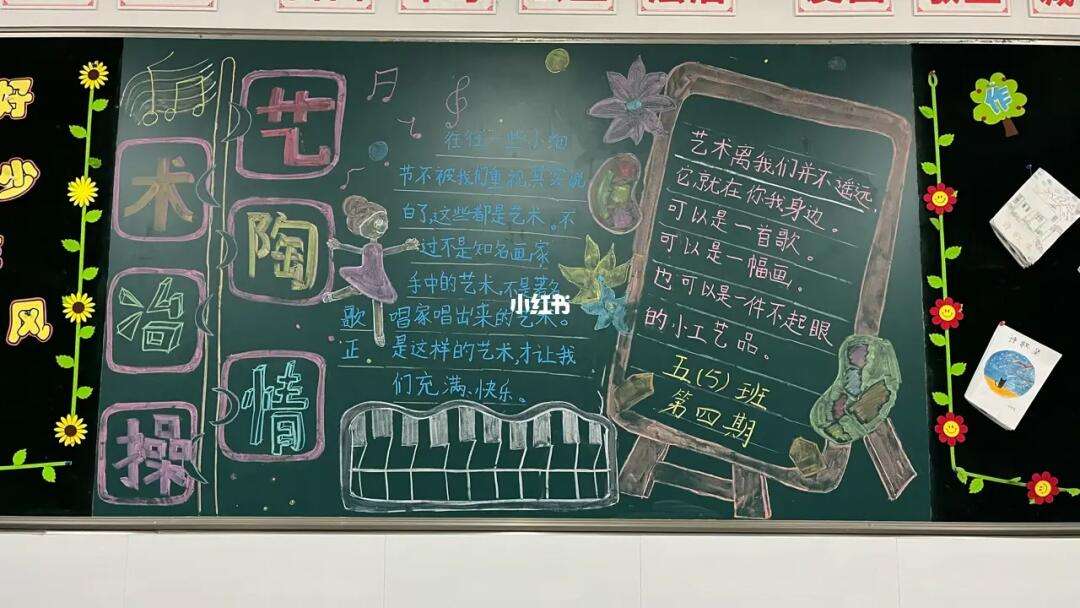 好
少
风
艺
术
陶
冶
情
操
往往一些小细
节不被我们重视,其实说
白了,这些都是艺术。不
过不是知名画家
手中的艺术,不是著名
歌唱家唱出来的艺术。
正是这样的艺术,才让我
们充满快乐。
小红书
艺术离我们并不遥远,
它就在你我身边。
可以是一首歌。
可以是一幅画。
也可以是一件不起眼
的小工艺品。
五(5)班
第四期
作